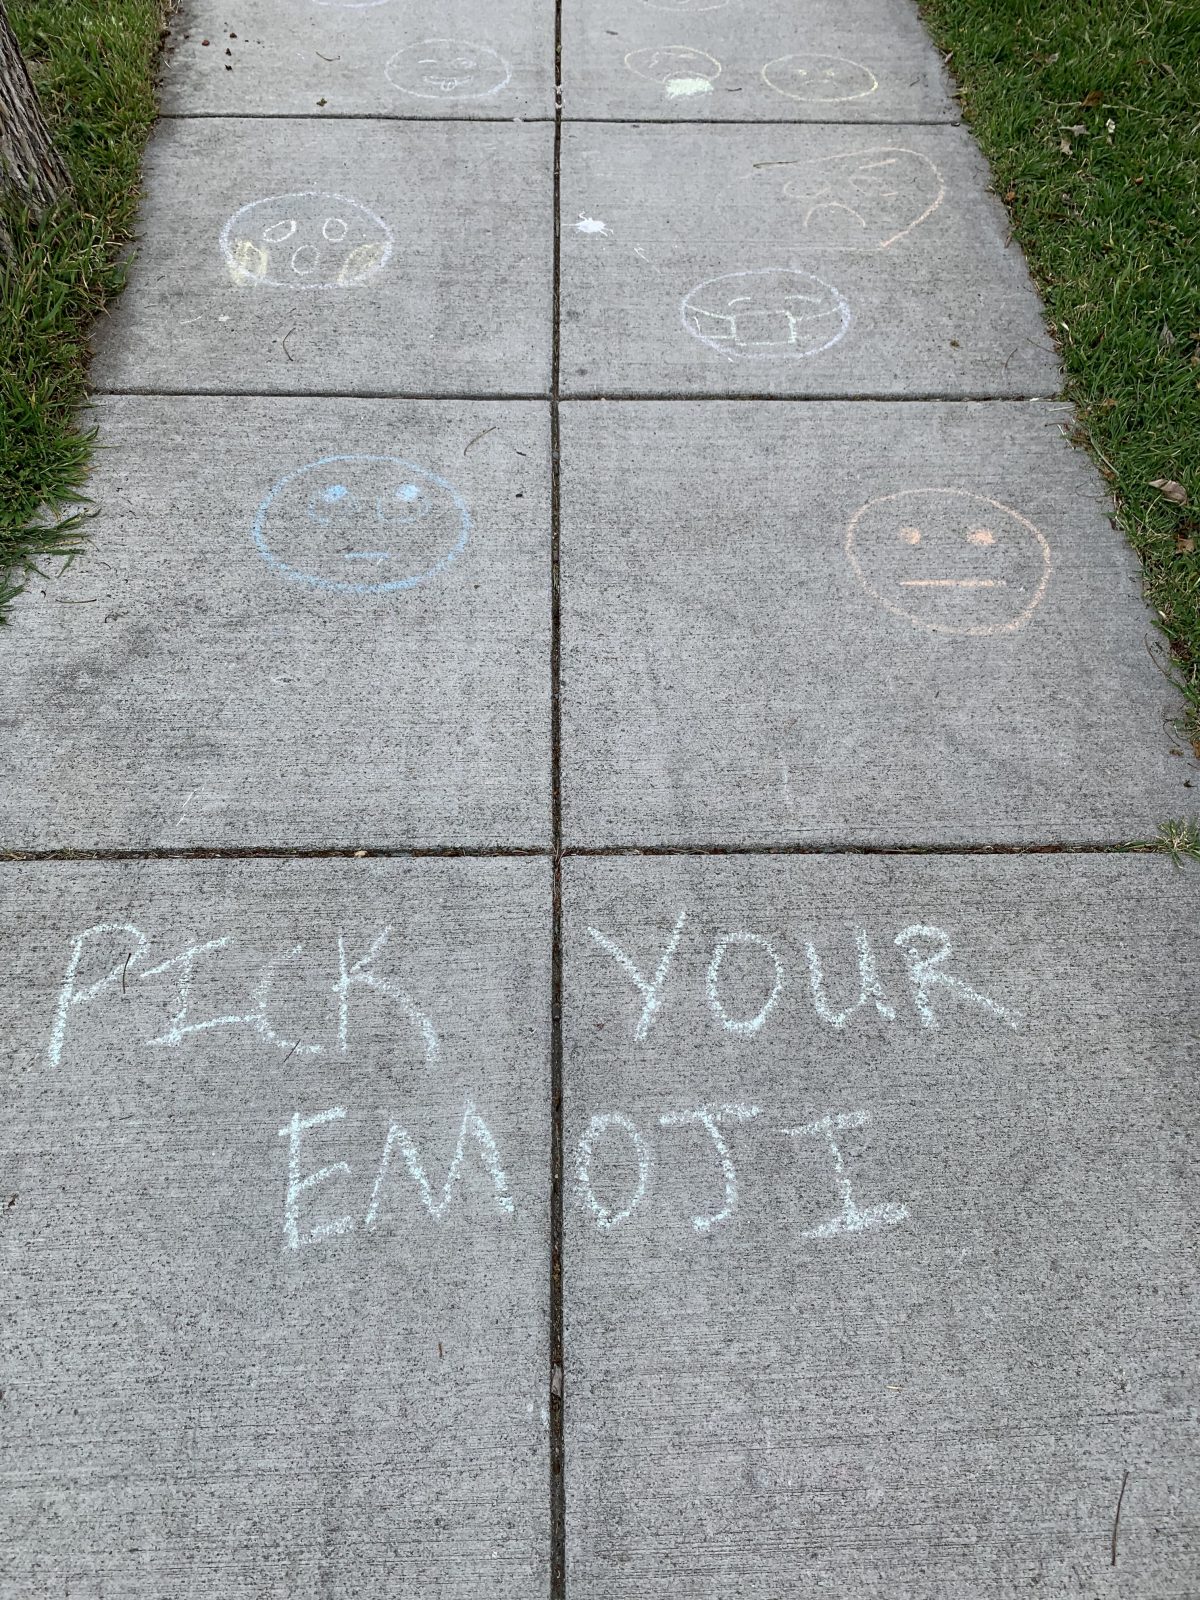 PICK YOUR
EMOJI